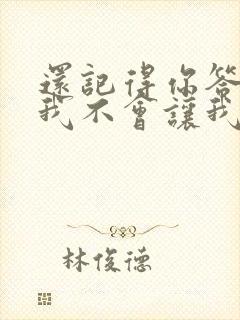 還記得你答
我不會讓我
林俊德